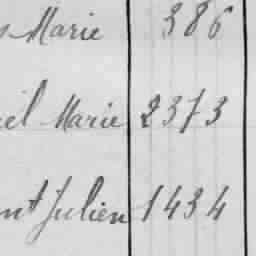 Marie 386
Marie 2373
Julien 1434